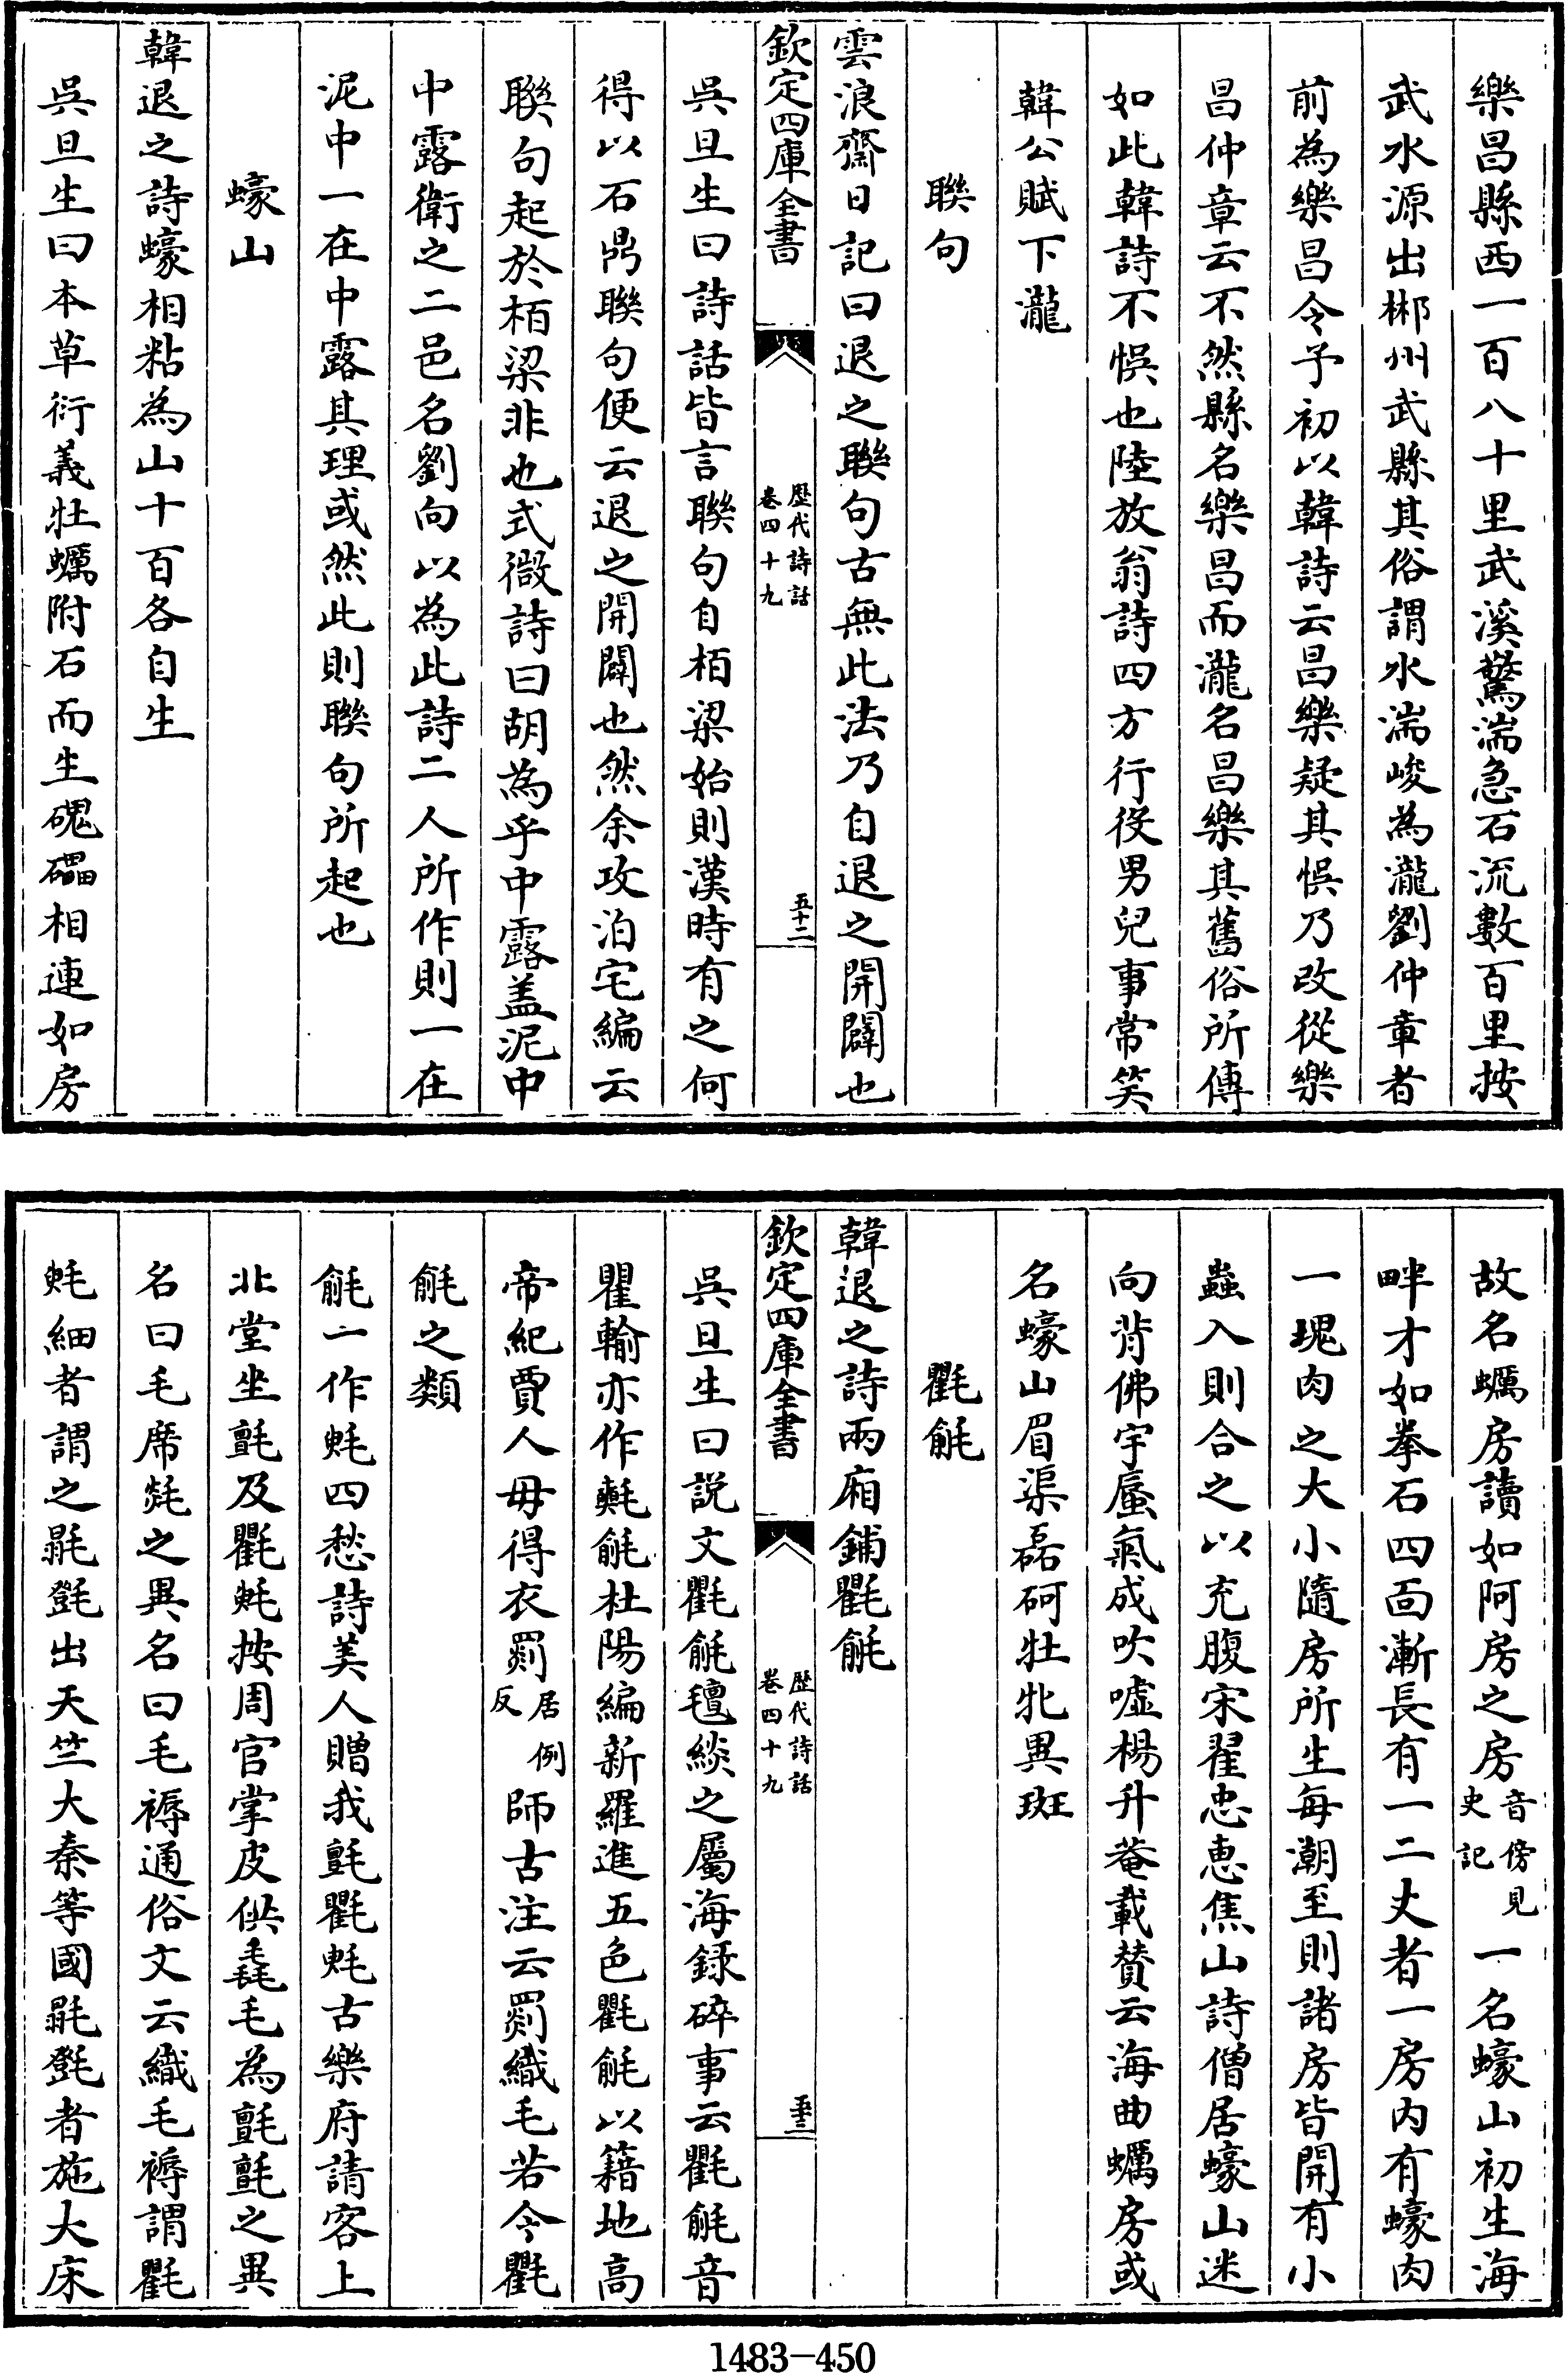 樂昌縣西一百八十里武溪驚湍急石流數百里按
武水源出郴州武縣其俗謂水湍峻為瀧劉仲章者
前為樂昌令予初以韓詩云昌樂疑其悞乃改從樂
昌仲章云不然縣名樂昌而瀧名昌樂其舊俗所傳
如此韓詩不悞也陸放翁詩四方行役男兒事常笑
韓公賦下瀧
聯句
雲浪齋日記曰退之聯句古無此法乃自退之開闢也
欽定四庫全書
歷代詩話
卷四十九
五十二
吳旦生曰詩話皆言聯句自栢梁始則漢時有之何
得以石鼎聯句便云退之開闢也然余攻泊宅編云
聯句起於栢梁非也式微詩曰胡為乎中露盖泥中
中露衛之二邑名劉向以為此詩二人所作則一在
泥中一在中露其理或然此則聯句所起也
蠔山
韓退之詩蠔相粘為山十百各自生
吳旦生曰本草衍義牡蠣附石而生磈礧相連如房
故名蠣房讀如阿房之房音傍見史記一名蠔山初生海
畔才如拳石四面漸長有一二丈者一房内有蠔肉
一塊肉之大小隨房所生每潮至則諸房皆開有小
蟲入則合之以充腹宋翟忠惠焦山詩僧居蠔山迷
向背佛宇蜃氣成吹噓楊升菴載賛云海曲蠣房或
名蠔山眉渠磊砢牡牝異斑
氍毹
韓退之詩兩廂鋪氍毹
欽定四庫全書
歷代詩話
卷四十九
五十三
吳旦生曰説文氍毹氊緂之屬海錄碎事云氍毹音
瞿輸亦作㲣毹杜陽編新羅進五色氍毹以籍地高
帝紀賈人毋得衣罽居例反師古注云罽織毛若今氍
毹之類
毹一作㲘四愁詩美人贈我氈氍㲘古樂府請客上
北堂坐氈及氍㲘按周官掌皮供毳毛為氈氈之異
名曰毛席㲘之異名曰毛褥通俗文云織毛褥謂氍
㲘細者謂之㲪㲮出天竺大秦等國㲪㲮者施大床
1483-450